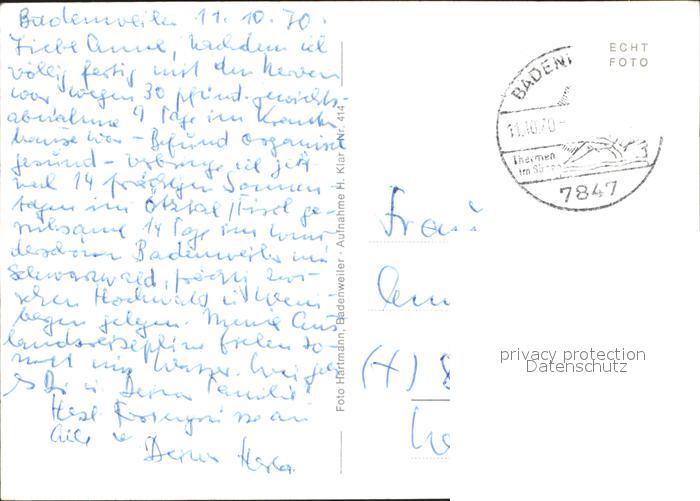 Badenweiler 11.10.70.
Liebe Anne, nachdem ich
völlig fertig mit den Nerven
war wegen 30 pfünd. gewichts-
abnahme 9 Tage im Kranken
hause war – Befund organisch
gesund – verbringe ich jetzt
nach 14 prächtigen Sonnen-
tagen im Ötztal
14 Tage im wun-
derschönen Badenweiler im
Schwarzwald, prächtig zwi-
schen Hochwald u. Wein-
bergen gelegen. Meine Aus-
landsreisepläne fielen so-
mit ins Wasser. Wie geht
es Dir u. Deiner Familie
Herzl.
Alle
Deine
Foto Hartmann, Badenweiler · Aufnahme H. Klar · Nr. 414
ECHT
FOTO
BADEN
11.10.70
Thermen
im Süden
7847
Frau
privacy protection
Datenschutz